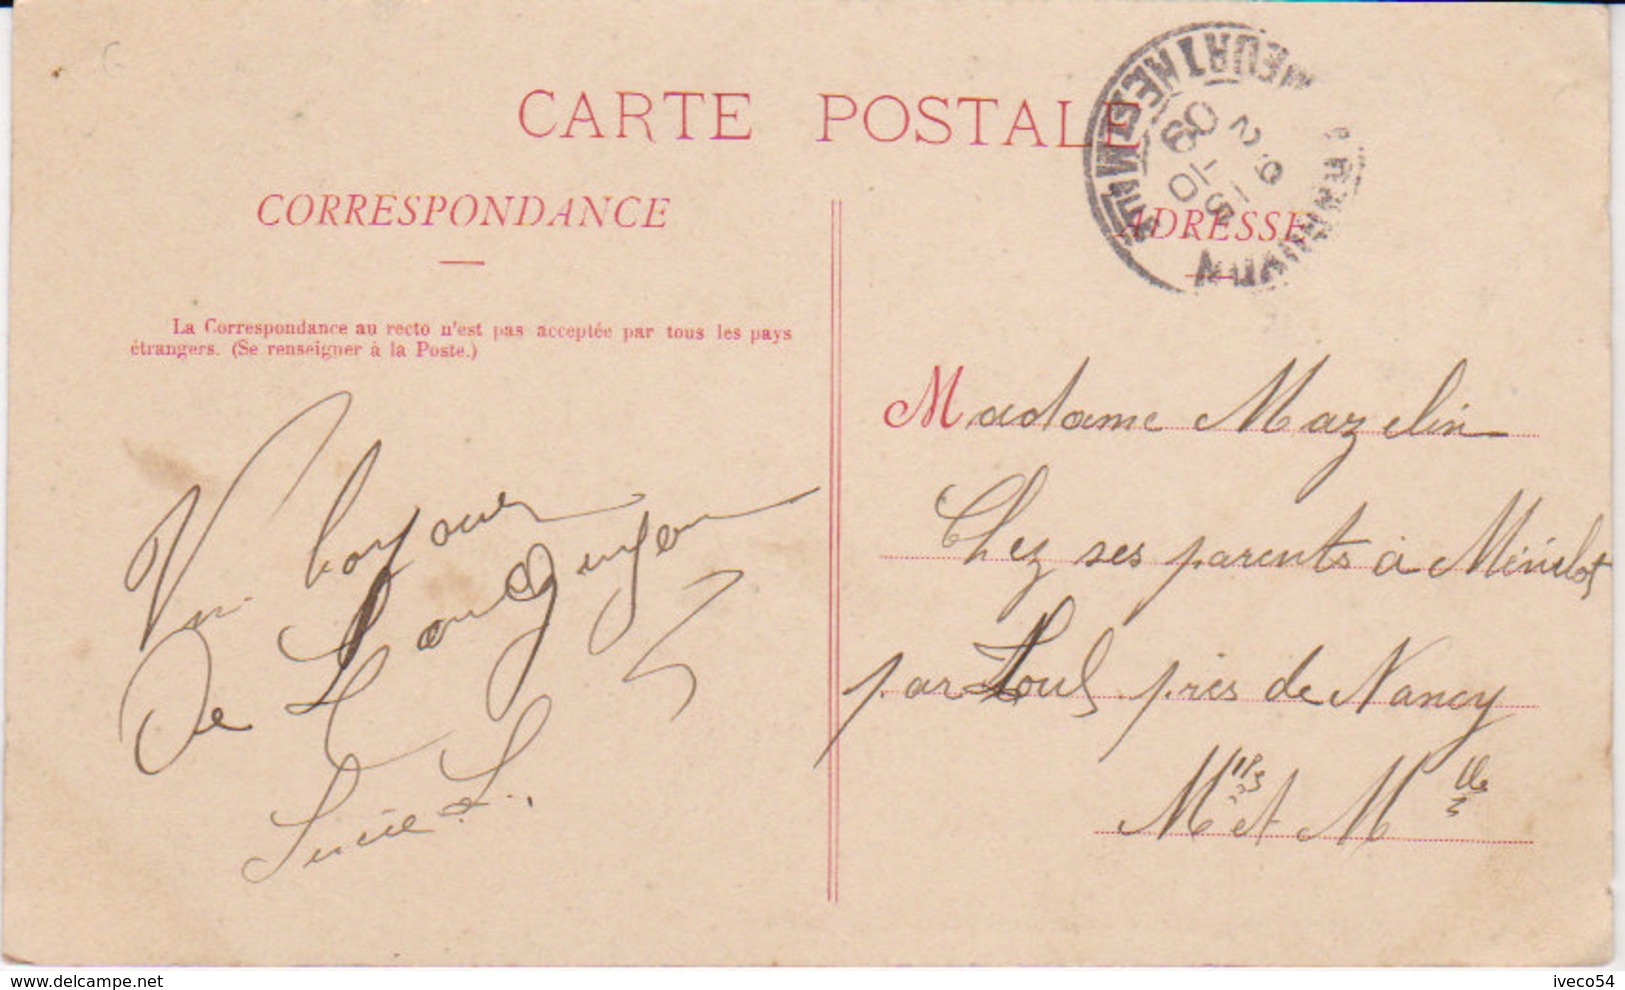 CARTE POSTALE
CORRESPONDANCE
La Correspondance au recto n'est pas acceptée par tous les pays
étrangers. (Se renseigner à la Poste.)
Un bonjour
De
Lucie L.
ADRESSE
MEURTHE
Madame Mazelin
Chez ses parents à Ménilot
par Toul près de Nancy
M et M lle
delcampe.net
iveco54